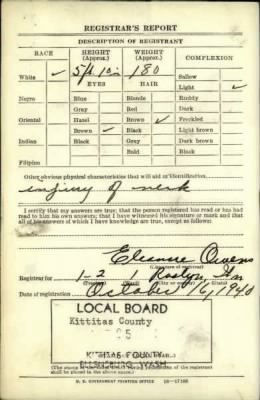 REGISTRAR'S REPORT
DESCRIPTION OF REGISTRANT
RACE HEIGHT (Approx.) WEIGHT (Approx.) COMPLEXION
White ✓ 5ft 10in 180 Sallow
EYES HAIR Light ✓
Negro Blue Blonde Ruddy
Gray Red Dark
Oriental Hazel Brown ✓ Freckled
Brown ✓ Black Light brown
Indian Black Gray Dark brown
Bald Black
Filipino
Other obvious physical characteristics that will aid in identification
injury of neck
I certify that my answers are true; that the person registered has read or has had read to him his own answers; that I have witnessed his signature or mark and that all of his answers of which I have knowledge are true, except as follows:
Eleanor Owens
(Signature of registrar)
Registrar for 1-2 1 Roslyn, Wn
Date of registration October 16, 1940
LOCAL BOARD
Kittitas County
KITTITAS COUNTY
ELLENSBURG, WASH
shall be placed in the above space.)
U. S. GOVERNMENT PRINTING OFFICE 16-17105